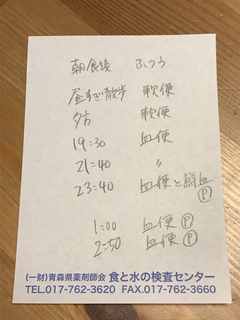 朝食後 ふつう
昼すぎ散歩 軟便
夕方 軟便
19:30 血便
21:40 〃
23:40 血便と鮮血
Ⓟ
1:00 血便 Ⓟ
2:50 血便 Ⓟ
(一財)青森県薬剤師会 食と水の検査センター
TEL.017-762-3620 FAX.017-762-3660